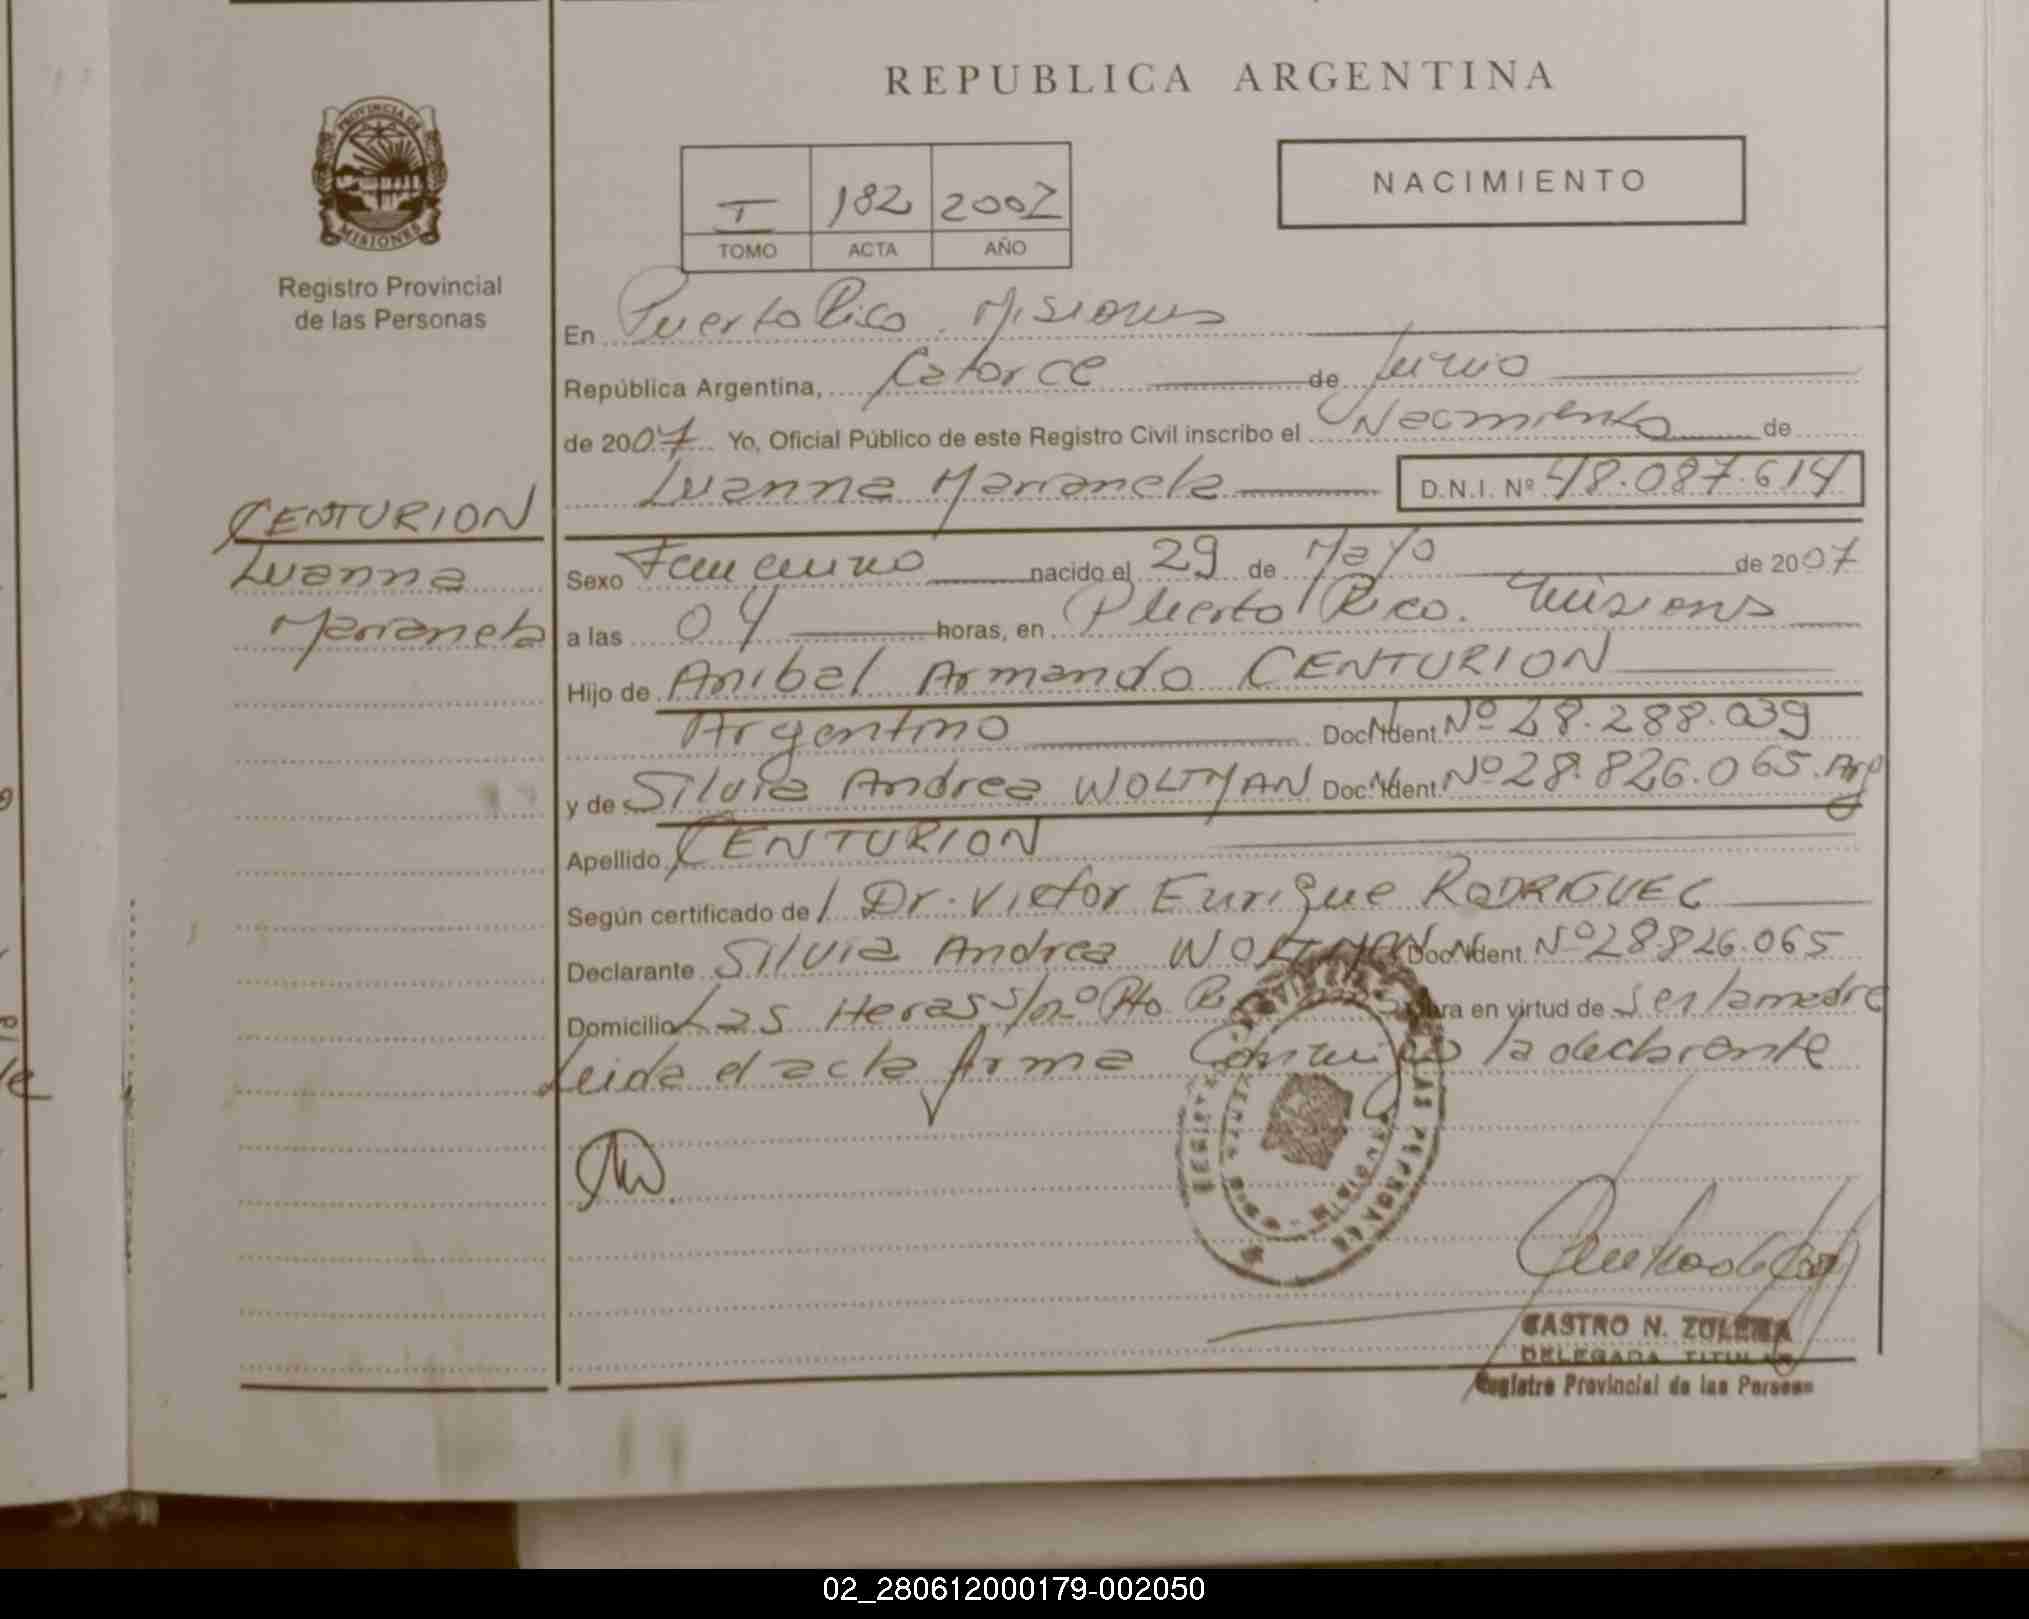 REPUBLICA ARGENTINA
PROVINCIA DE
MISIONES
Registro Provincial
de las Personas
I 182 2007
TOMO ACTA AÑO
NACIMIENTO
En Puerto Rico. Misiones
República Argentina, Catorce de Junio
de 2007 Yo, Oficial Público de este Registro Civil inscribo el Nacimiento de
Luanna Marianela D.N.I. Nº 48.087.614
CENTURION
Luanna
Marianela
Sexo Femenino nacido el 29 de Mayo de 2007
a las 04 horas, en Puerto Rico. Misiones
Hijo de Anibal Armando CENTURION
Argentino Doc. Ident. Nº 28.288.039
y de Silvia Andrea WOLTMAN Doc. Ident. Nº 28.826.065. Arg
Apellido CENTURION
Según certificado de / Dr. Victor Enrique RODRIGUEZ
Declarante Silvia Andrea WOLTMAN Doc. Ident. Nº 28826.065
Domicilio Las Heras s/nº Pto. R en virtud de ser la madre
Leida el acta firma Conmigo la declarante
CASTRO N. ZULEMA
DELEGADA TITULAR
Registro Provincial de las Personas
02_280612000179-002050